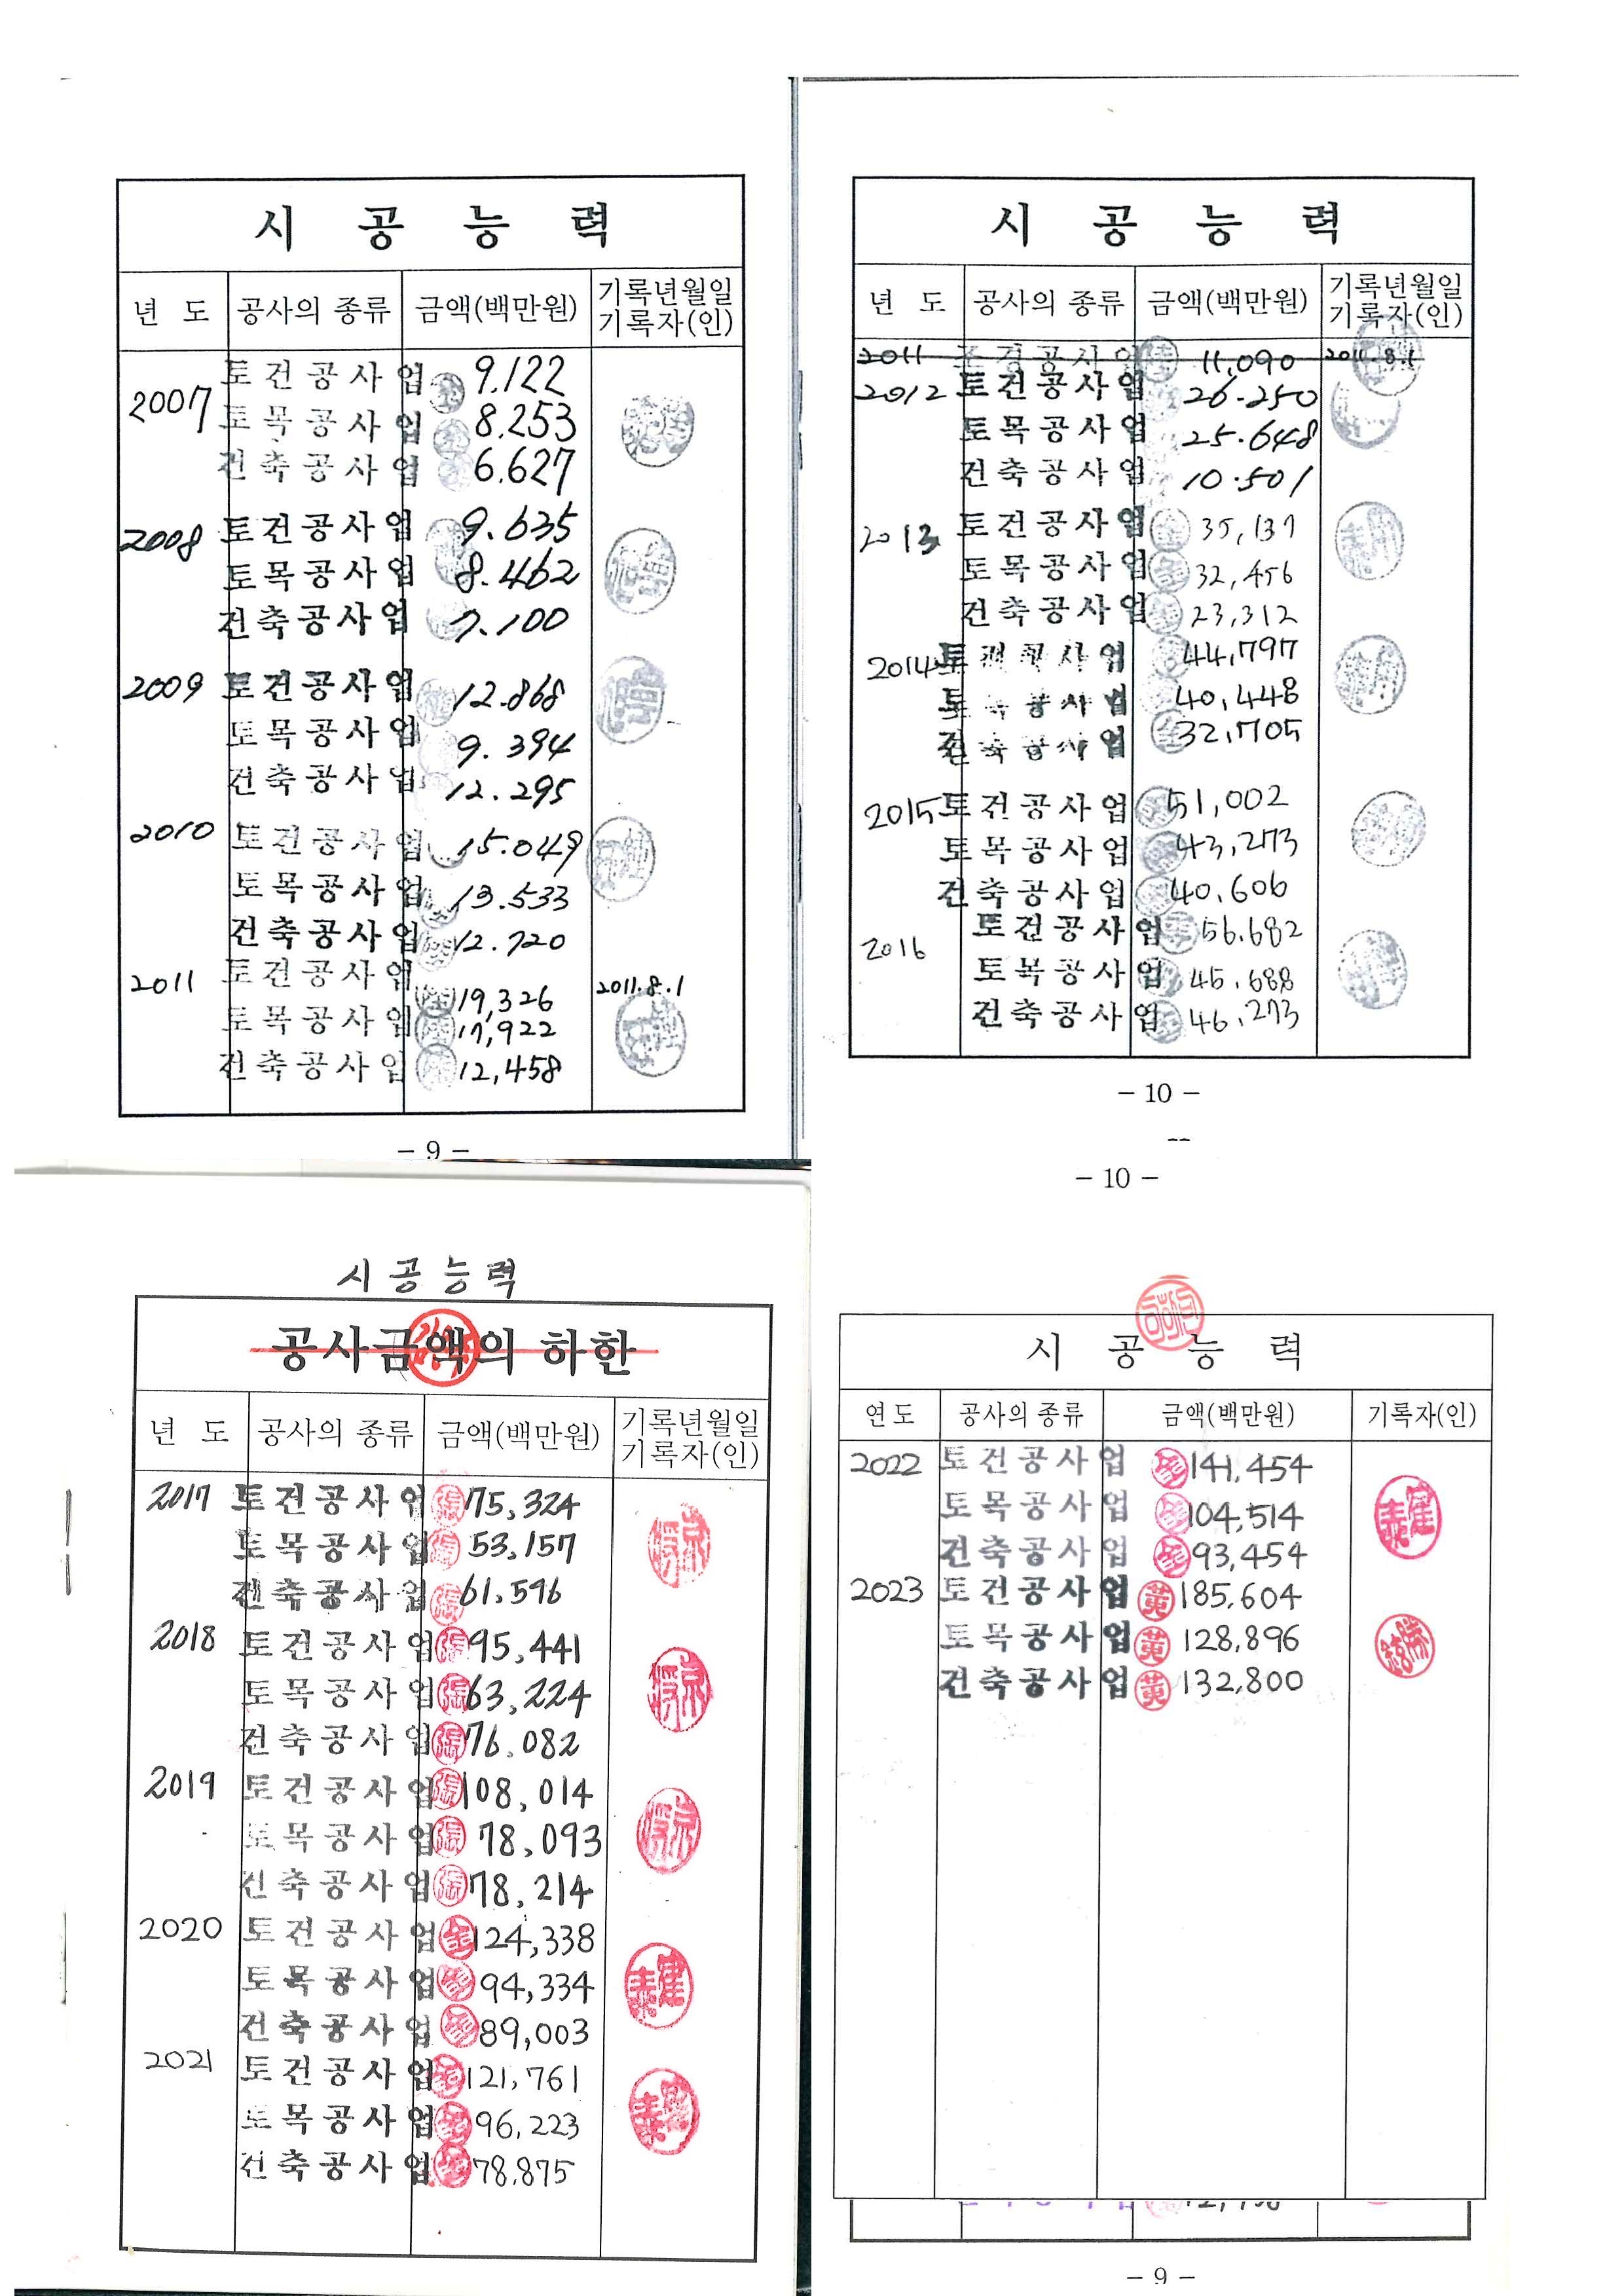 시 공 능 력
년 도 공사의 종류 금액(백만원) 기록년월일 기록자(인)
2007 토건공사업 9,122
토목공사업 8,253
건축공사업 6,627
2008 토건공사업 9.635
토목공사업 8.462
건축공사업 7.100
2009 토건공사업 12.868
토목공사업 9.394
건축공사업 12.295
2010 토건공사업 15.049
토목공사업 13.533
건축공사업 12.720
2011 토건공사업 19,326 2011.8.1
토목공사업 17,922
건축공사업 12,458
- 9 -
시 공 능 력
년 도 공사의 종류 금액(백만원) 기록년월일 기록자(인)
2011 조경공사업 11,090 2011.8.1
2012 토건공사업 26.250
토목공사업 25.648
건축공사업 10.501
2013 토건공사업 35,137
토목공사업 32,456
건축공사업 23,312
2014 토건공사업 44,797
토목공사업 40,448
건축공사업 32,705
2015 토건공사업 51,002
토목공사업 43,273
건축공사업 40,606
2016 토건공사업 56,682
토목공사업 45,688
건축공사업 46,273
- 10 -
- 10 -
시공능력
공사금액의 하한
년 도 공사의 종류 금액(백만원) 기록년월일 기록자(인)
2017 토건공사업 75,324
토목공사업 53,157
건축공사업 61,596
2018 토건공사업 95,441
토목공사업 63,224
건축공사업 76,082
2019 토건공사업 108,014
토목공사업 78,093
건축공사업 78,214
2020 토건공사업 124,338
토목공사업 94,334
건축공사업 89,003
2021 토건공사업 121,761
토목공사업 96,223
건축공사업 78,875
시 공 능 력
연도 공사의 종류 금액(백만원) 기록자(인)
2022 토건공사업 141,454
토목공사업 104,514
건축공사업 93,454
2023 토건공사업 黃 185,604
토목공사업 黃 128,896
건축공사업 黃 132,800
- 9 -